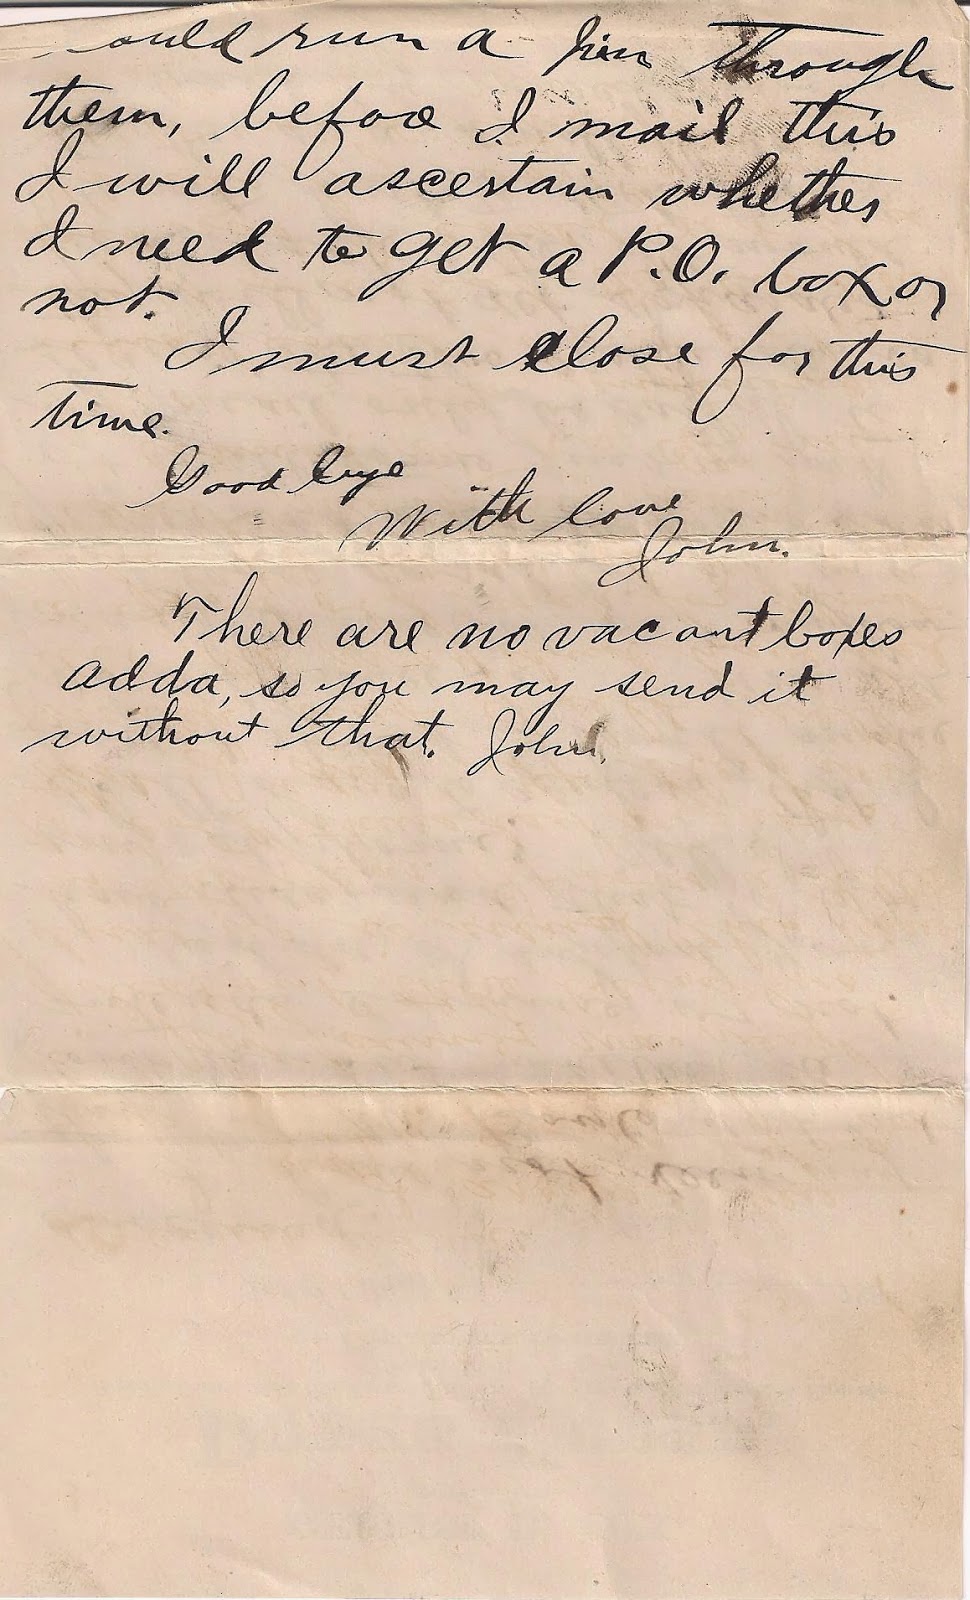 ould run a pin through
them, before I mail this
I will ascertain whether
I need to get a P.O. box or
not.
I must close for this
time.
Good bye
With love
John.
There are no vacant boxes
adda, so you may send it
without that. John.